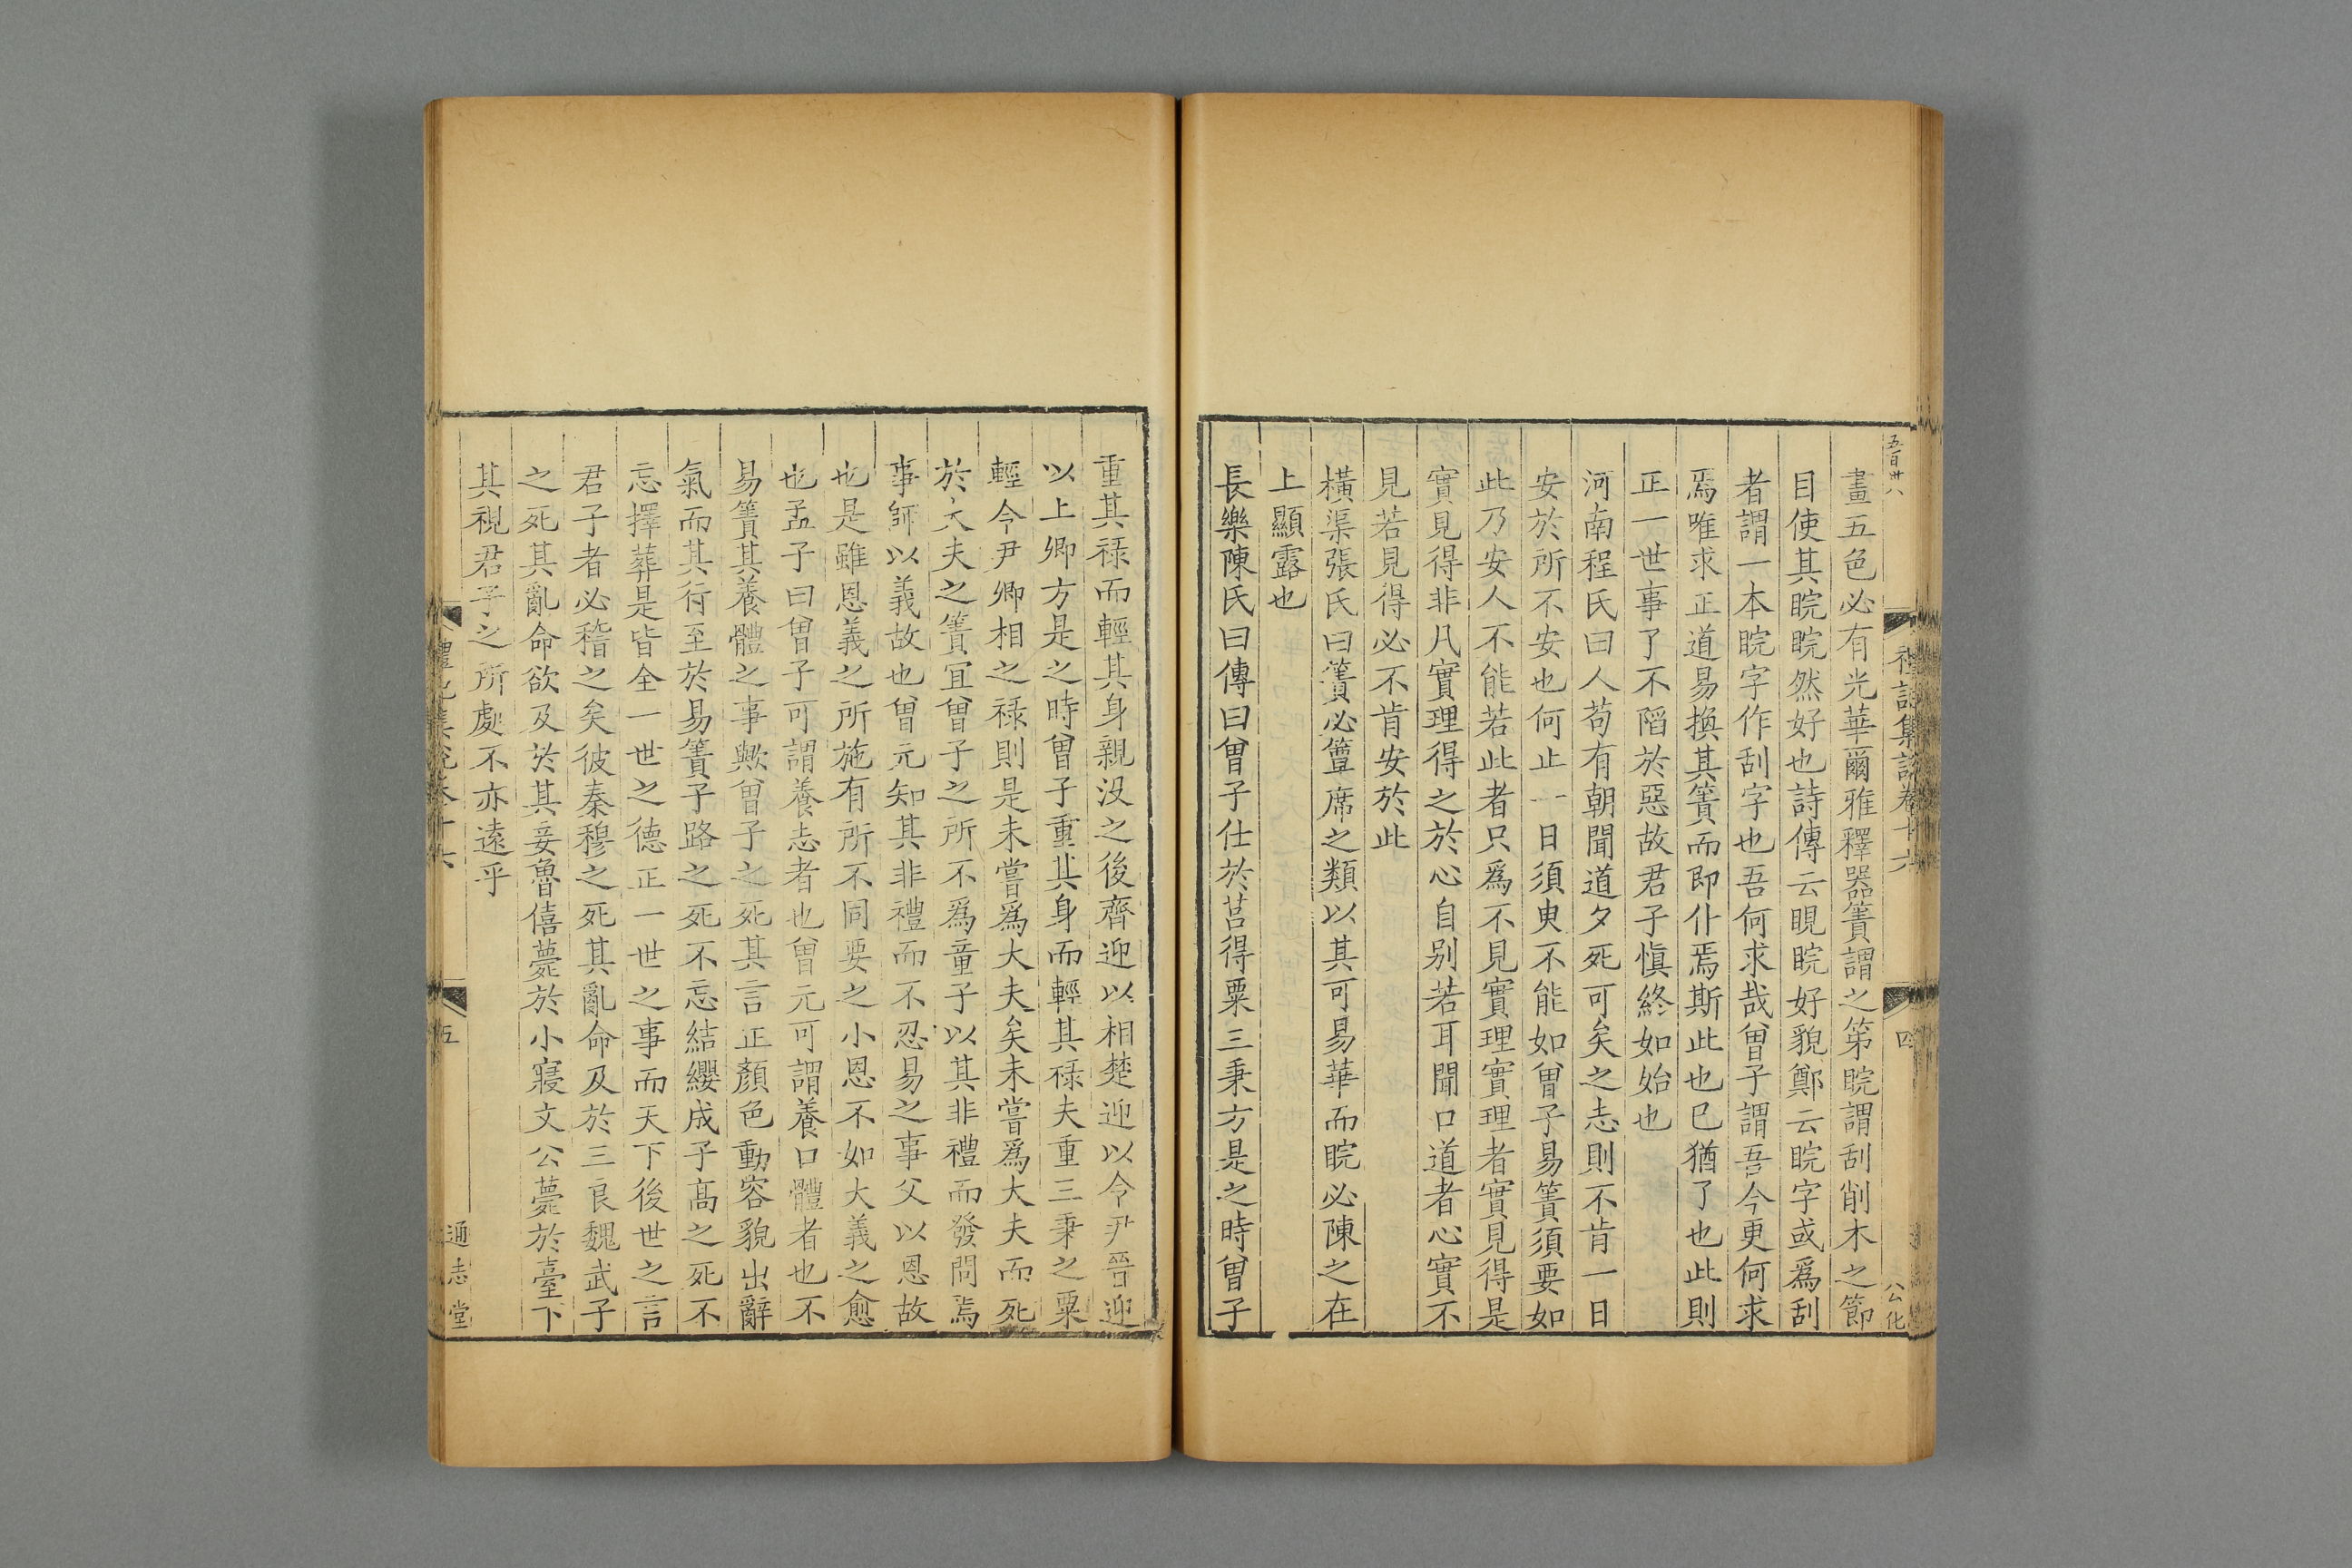 五百卅八
禮記集說卷十六
四
公化
畫五色必有光華爾雅釋器簀謂之笫睆謂刮削木之節
目使其睆睆然好也詩傳云睍睆好貌鄭云睆字或爲刮
者謂一本睆字作刮字也吾何求哉曾子謂吾今更何求
焉唯求正道易換其簀而即仆焉斯此也已猶了也此則
正一世事了不陷於惡故君子愼終如始也
河南程氏曰人苟有朝聞道夕死可矣之志則不肯一日
安於所不安也何止一日須臾不能如曾子易簀須要如
此乃安人不能若此者只爲不見實理實理者實見得是
實見得非凡實理得之於心自别若耳聞口道者心實不
見若見得必不肯安於此
橫渠張氏曰簀必簟席之類以其可易華而睆必陳之在
上顯露也
長樂陳氏曰傳曰曾子仕於莒得粟三秉方是之時曾子
重其祿而輕其身親没之後齊迎以相楚迎以令尹晉迎
以上卿方是之時曾子重其身而輕其祿夫重三秉之粟
輕令尹卿相之祿則是未嘗爲大夫矣未嘗爲大夫而死
於大夫之簀宜曾子之所不爲童子以其非禮而發問焉
事師以義故也曾元知其非禮而不忍易之事父以恩故
也是雖恩義之所施有所不同要之小恩不如大義之愈
也孟子曰曾子可謂養志者也曾元可謂養口體者也不
易簀其養體之事歟曾子之死其言正顏色動容貌出辭
氣而其行至於易簀子路之死不忘結纓成子高之死不
忘擇葬是皆全一世之德正一世之事而天下後世之言
君子者必稽之矣彼秦穆之死其亂命及於三良魏武子
之死其亂命欲及於其妾魯僖薨於小寢文公薨於臺下
其視君子之所處不亦遠乎
禮記集說卷十六
五
通志堂